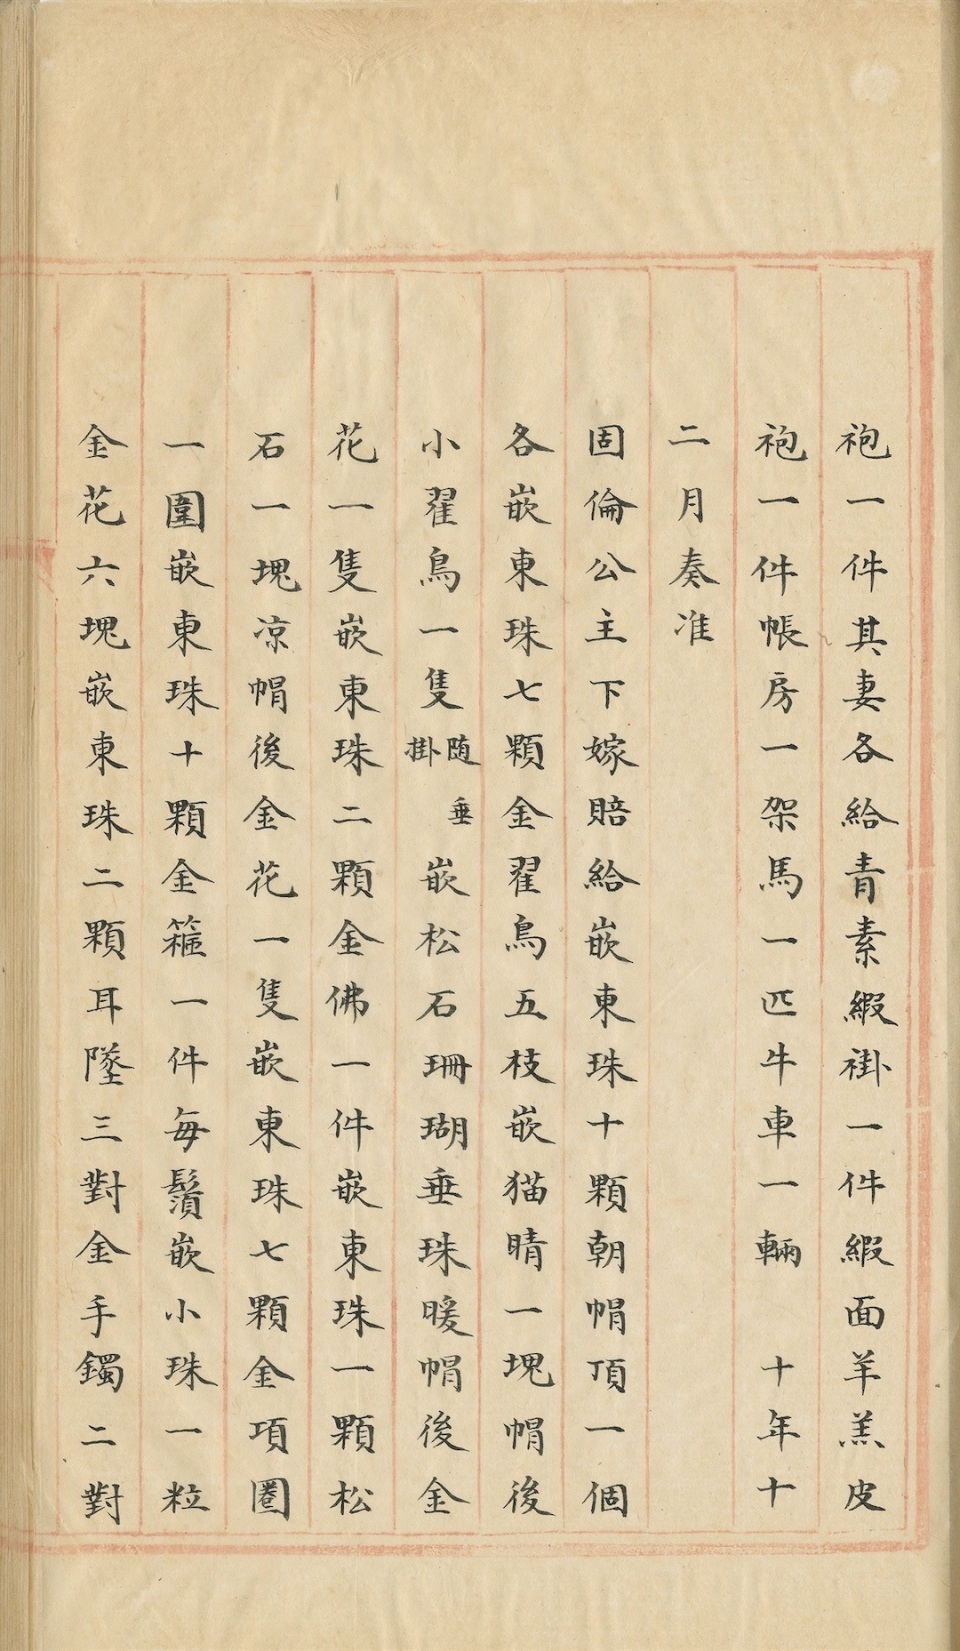 袍一件其妻各給青素緞褂一件緞面羊羔皮
袍一件帳房一架馬一匹牛車一輛　十年十
二月奏准
固倫公主下嫁賠給嵌東珠十顆朝帽頂一個
各嵌東珠七顆金翟鳥五枝嵌猫睛一塊帽後
小翟鳥一隻随垂掛嵌松石珊瑚垂珠暖帽後金
花一隻嵌東珠二顆金佛一件嵌東珠一顆松
石一塊凉帽後金花一隻嵌東珠七顆金項圈
一圍嵌東珠十顆金箍一件每鬚嵌小珠一粒
金花六塊嵌東珠二顆耳墜三對金手鐲二對